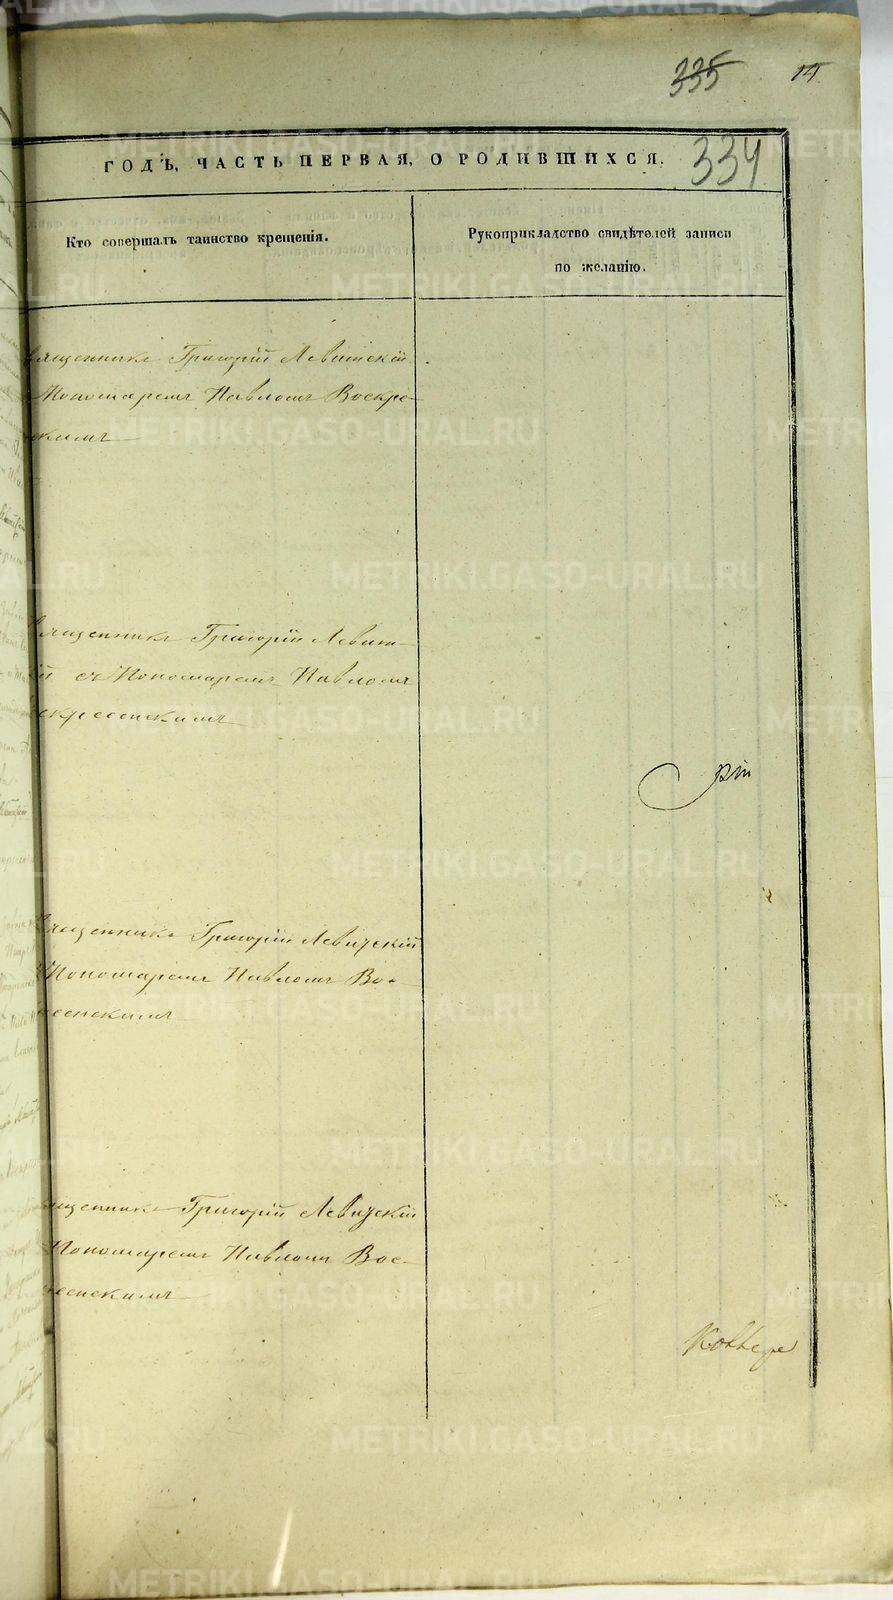 335 14
334
ГОДЪ, ЧАСТЬ ПЕРВАЯ, О РОДИВШИХСЯ.
Кто совершалъ таинство крещенія.
Рукоприкладство свидѣтелей записи
по желанію.
священникъ Григорій Левитскій
Пономаремъ Павломъ Воскре-
скимъ
Священникъ Григорій Левит-
ій съ Пономаремъ Павломъ
скресенскимъ
Священникъ Григорій Левицскій
Пономаремъ Павломъ Во-
ресенскимъ
ященникъ Григорій Левицскій
Пономаремъ Павломъ Вос-
ресенскимъ
METRIKI.GASO-URAL.RU